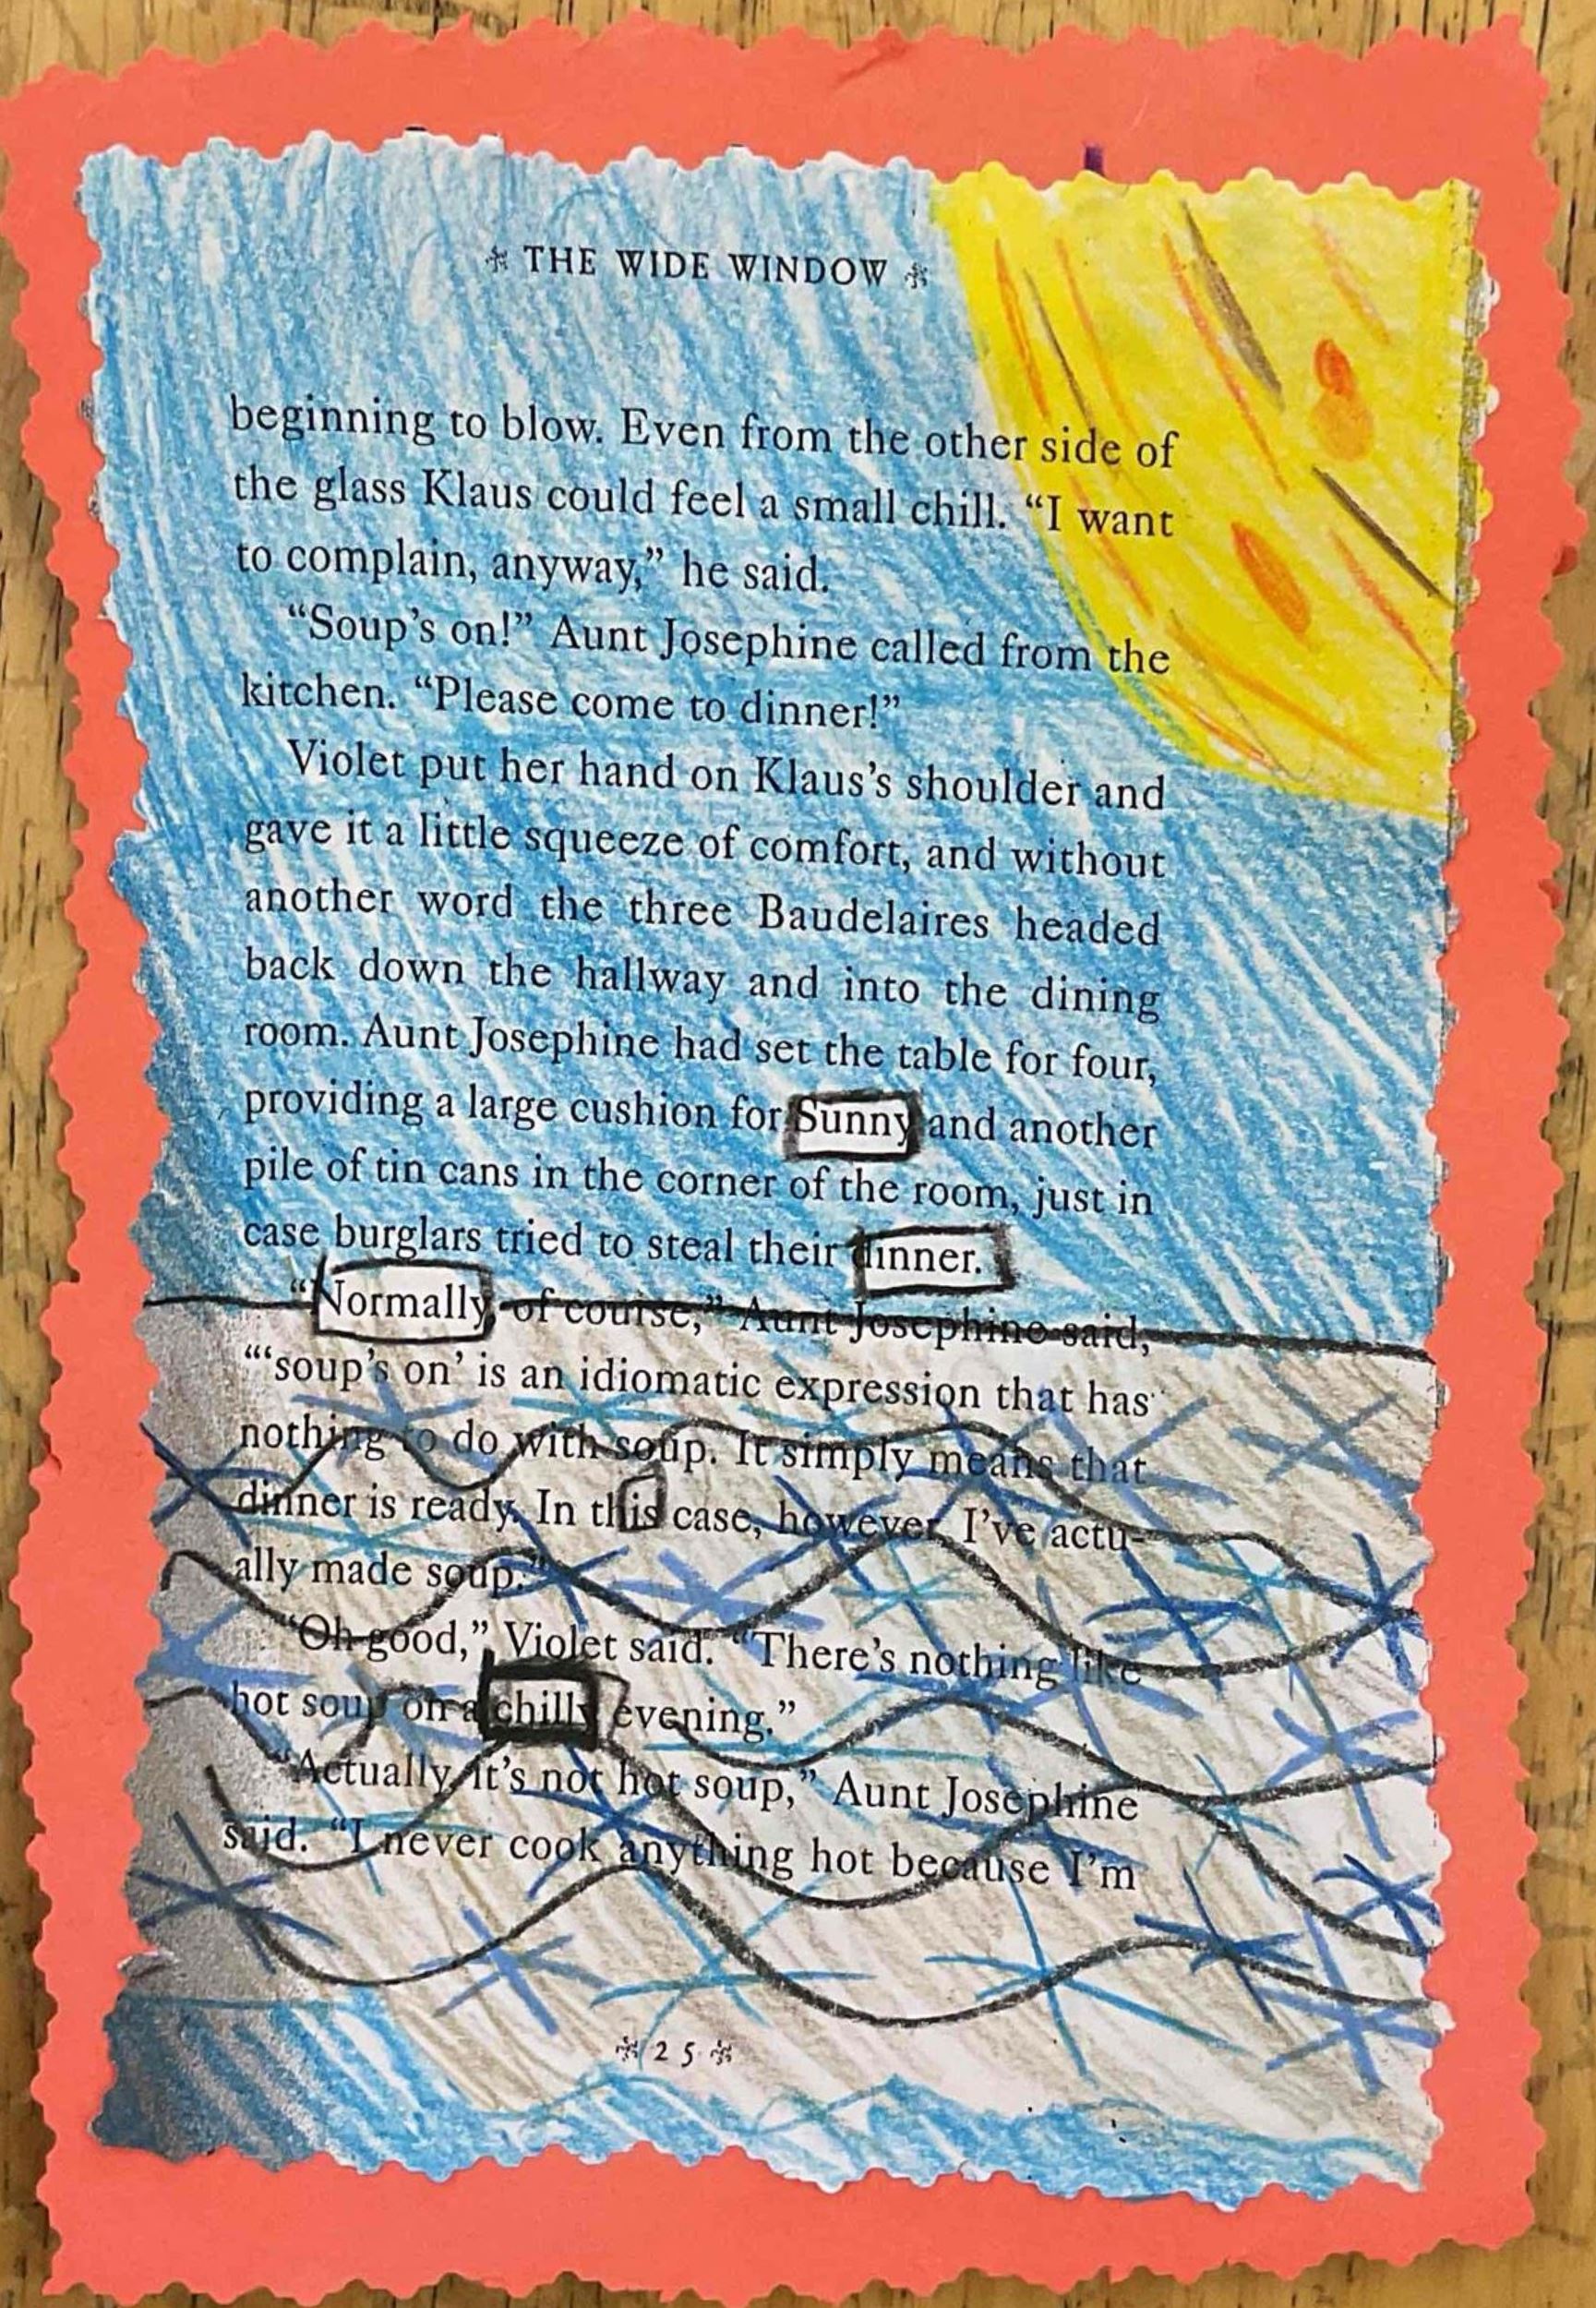 THE WIDE WINDOW
beginning to blow. Even from the other side of
the glass Klaus could feel a small chill. “I want
to complain, anyway,” he said.
“Soup’s on!” Aunt Josephine called from the
kitchen. “Please come to dinner!”
Violet put her hand on Klaus’s shoulder and
gave it a little squeeze of comfort, and without
another word the three Baudelaires headed
back down the hallway and into the dining
room. Aunt Josephine had set the table for four,
providing a large cushion for Sunny and another
pile of tin cans in the corner of the room, just in
case burglars tried to steal their dinner.
“Normally, of course,” Aunt Josephine said,
“‘soup’s on’ is an idiomatic expression that has
nothing to do with soup. It simply means that
dinner is ready. In this case, however, I’ve actu-
ally made soup.”
“Oh good,” Violet said. “There’s nothing like
hot soup on a chilly evening.”
“Actually, it’s not hot soup,” Aunt Josephine
said. “I never cook anything hot because I’m
25